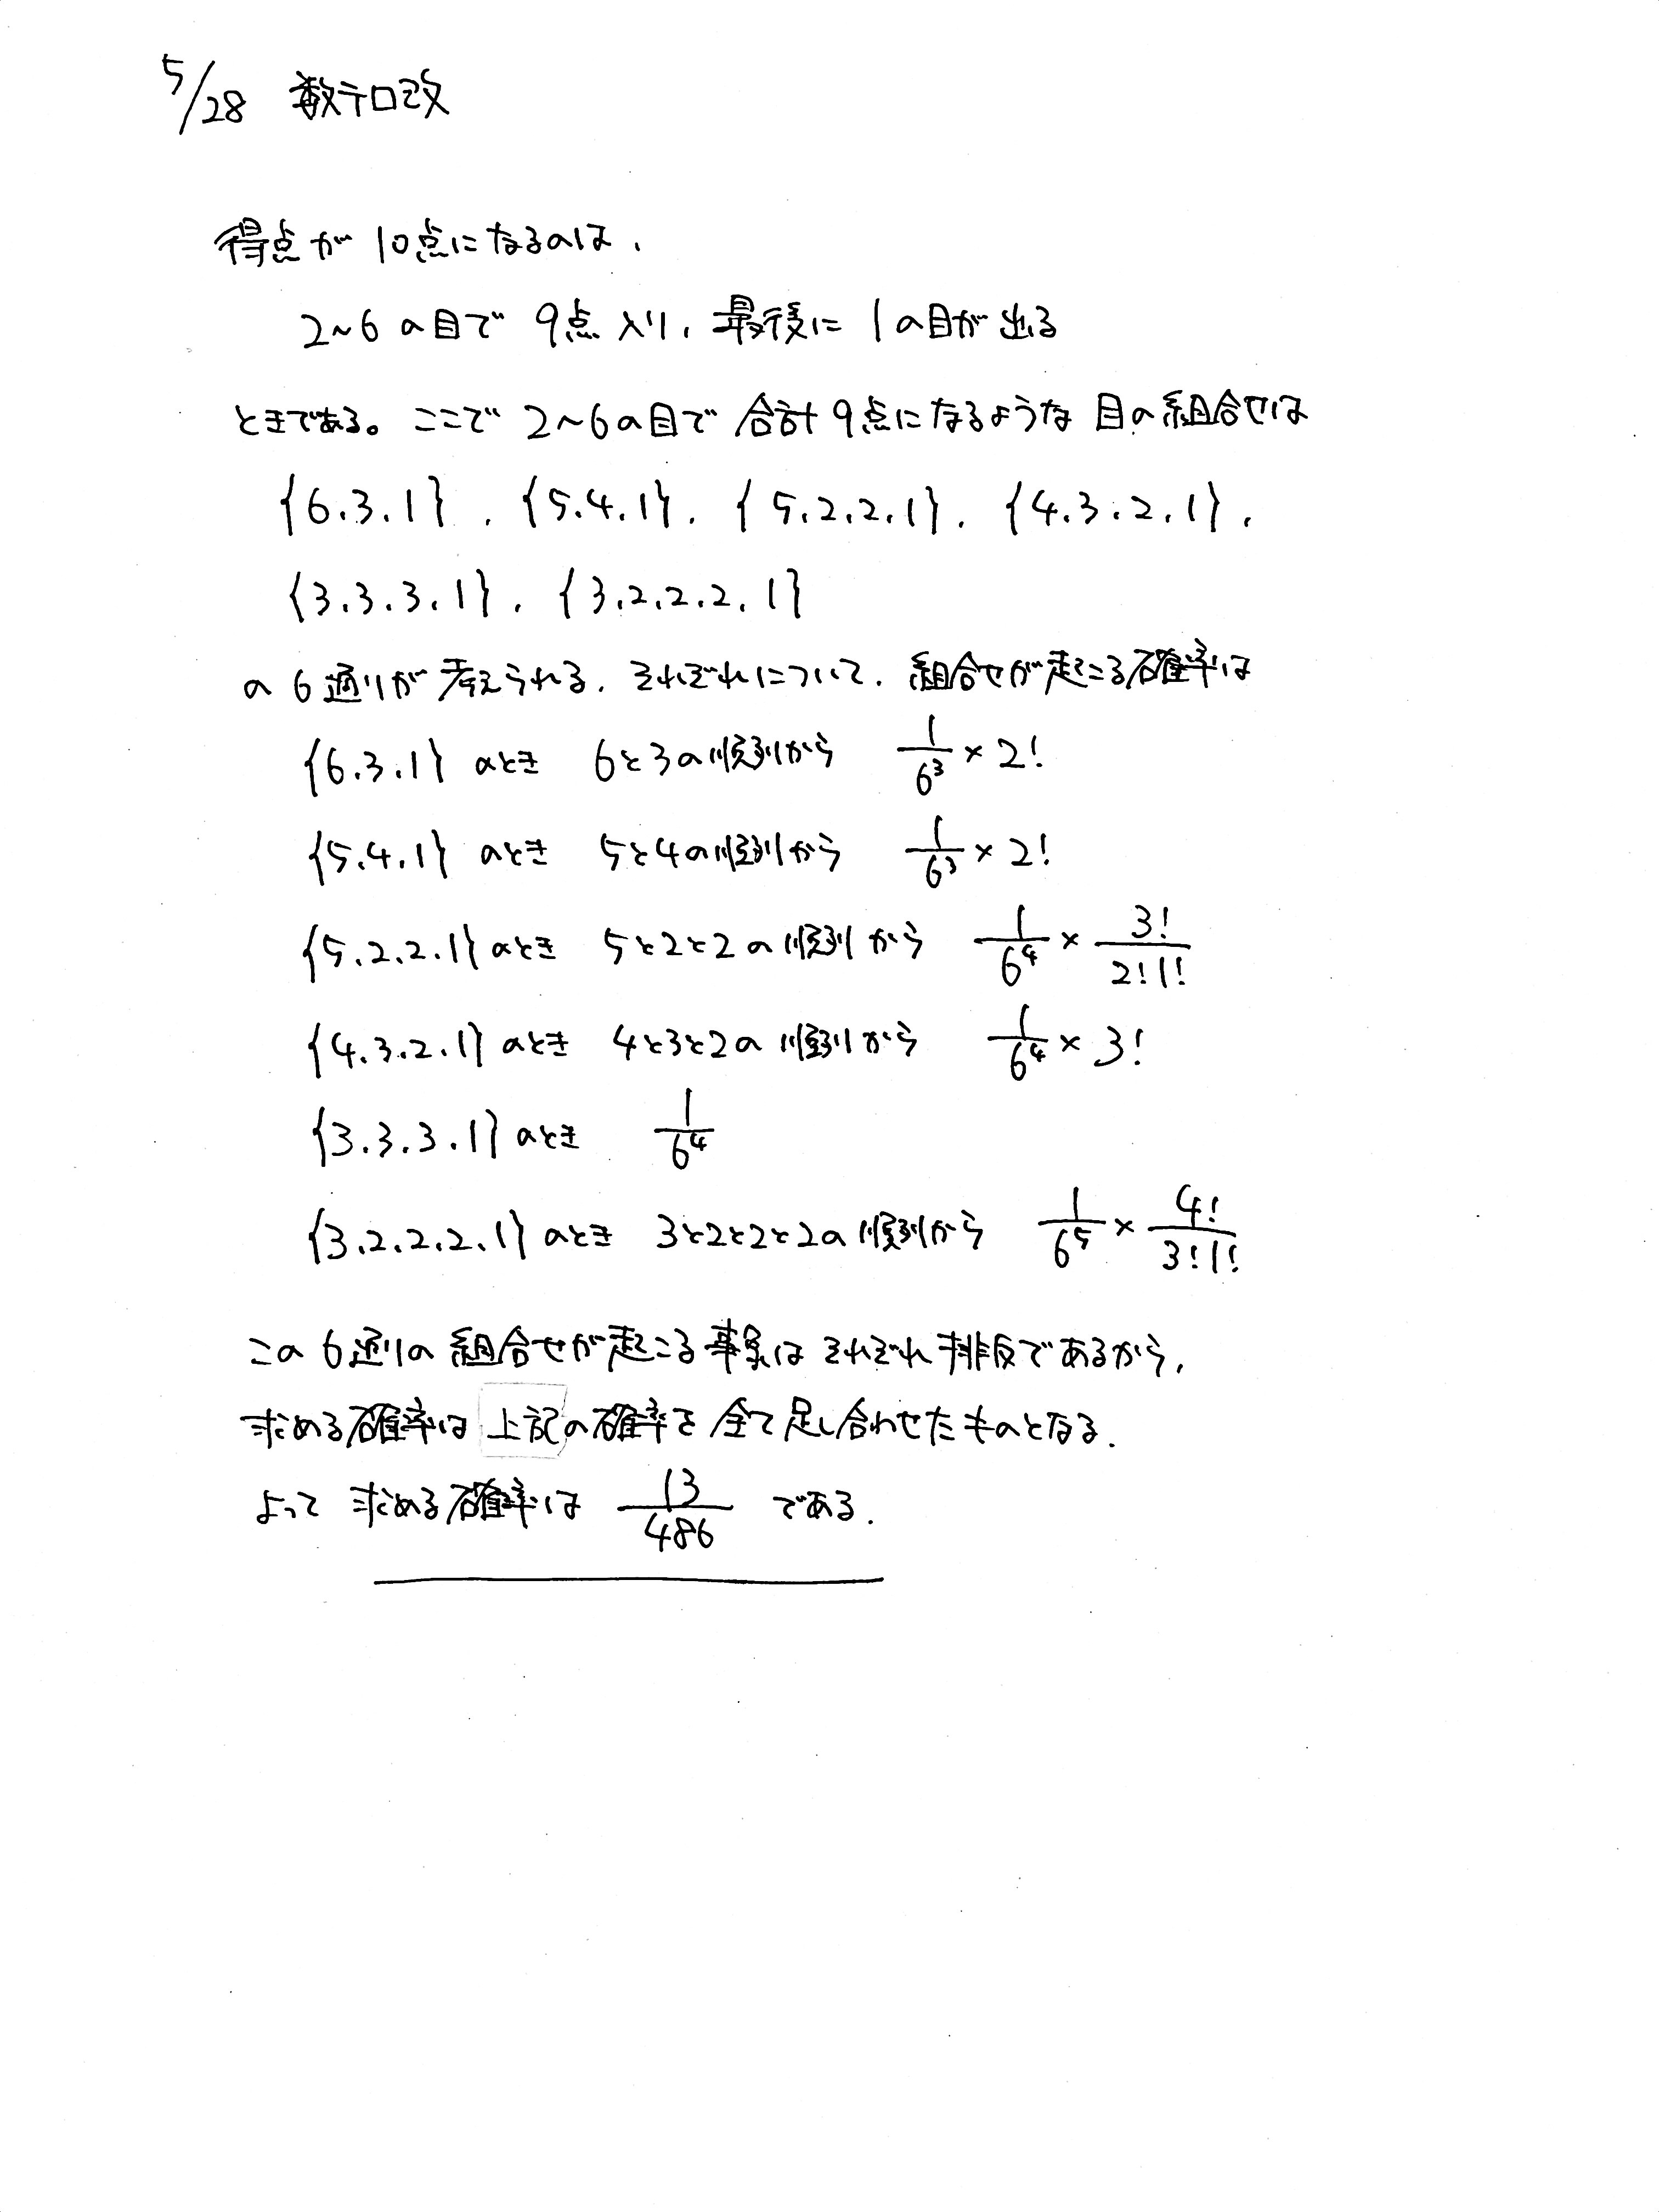 5/28 数テロ改
得点が 10点になるのは、
2~6の目で 9点入り、最後に 1の目が出る
ときである。ここで 2~6の目で 合計9点になるような 目の組合せは
{6.3.1}, {5.4.1}, {5.2.2.1}, {4.3.2.1},
{3.3.3.1}, {3.2.2.2.1}
の6通りが考えられる. それぞれについて. 組合せが起こる確率は
{6.3.1} のとき 6と3の順列から 1/6³ × 2!
{5.4.1} のとき 5と4の順列から 1/6³ × 2!
{5.2.2.1} のとき 5と2と2の順列から 1/6⁴ × 3!/2!1!
{4.3.2.1} のとき 4と3と2の順列から 1/6⁴ × 3!
{3.3.3.1} のとき 1/6⁴
{3.2.2.2.1} のとき 3と2と2と2の順列から 1/6⁵ × 4!/3!1!
この6通りの組合せが起こる事象はそれぞれ排反であるから,
求める確率は上記の確率を全て足し合わせたものとなる.
よって 求める確率は 13/486 である.